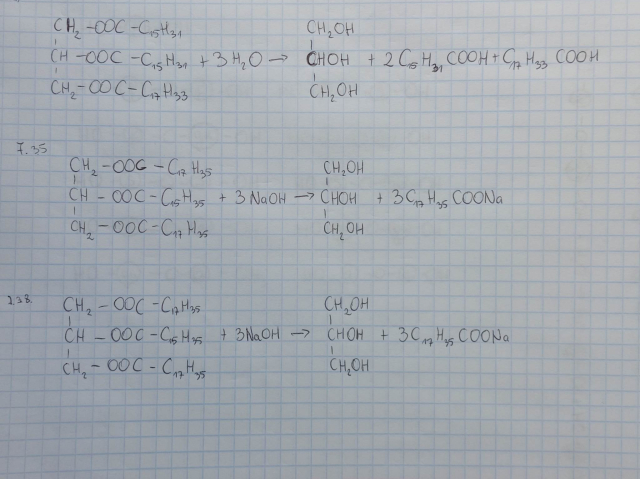 CH₂ - OOC - C₁₅H₃₁ CH₂OH
CH - OOC - C₁₅H₃₁ + 3H₂O → CHOH + 2C₁₅H₃₁COOH + C₁₇H₃₃COOH
CH₂ - OOC - C₁₇H₃₃ CH₂OH
7.35
CH₂ - OOC - C₁₇H₃₅ CH₂OH
CH - OOC - C₁₅H₃₅ + 3NaOH → CHOH + 3C₁₇H₃₅COONa
CH₂ - OOC - C₁₇H₃₅ CH₂OH
CH₂ - OOC - C₁₇H₃₅ CH₂OH
CH - OOC - C₁₅H₃₅ + 3NaOH → CHOH + 3C₁₇H₃₅COONa
CH₂ - OOC - C₁₇H₃₅ CH₂OH